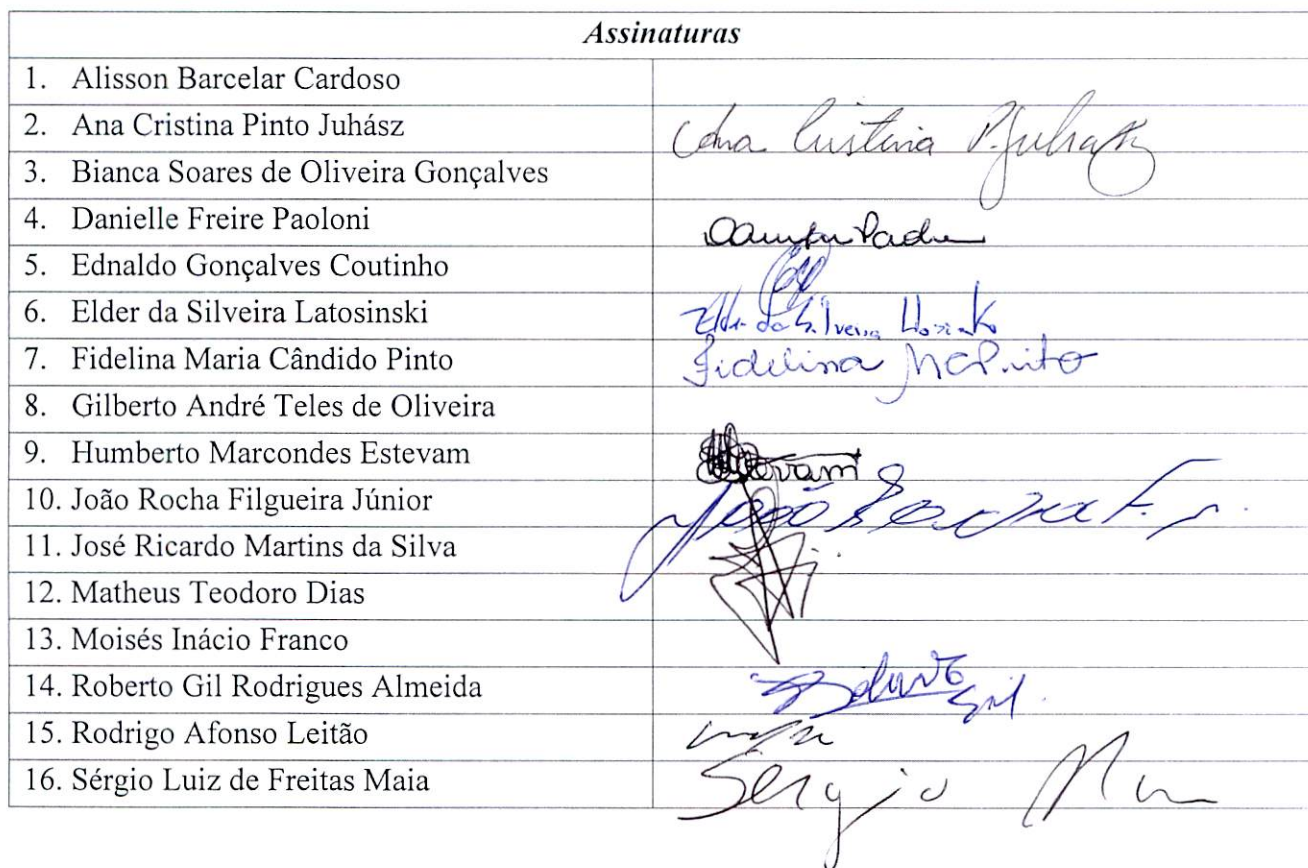 Assinaturas
1. Alisson Barcelar Cardoso
2. Ana Cristina Pinto Juhász
Ana Cristina P. Juhasz
3. Bianca Soares de Oliveira Gonçalves
4. Danielle Freire Paoloni
5. Ednaldo Gonçalves Coutinho
6. Elder da Silveira Latosinski
Elder da Silveira
7. Fidelina Maria Cândido Pinto
Fidelina MCPinto
8. Gilberto André Teles de Oliveira
9. Humberto Marcondes Estevam
10. João Rocha Filgueira Júnior
João Rocha F. Jr.
11. José Ricardo Martins da Silva
12. Matheus Teodoro Dias
13. Moisés Inácio Franco
14. Roberto Gil Rodrigues Almeida
Roberto Gil.
15. Rodrigo Afonso Leitão
16. Sérgio Luiz de Freitas Maia
Sérgio